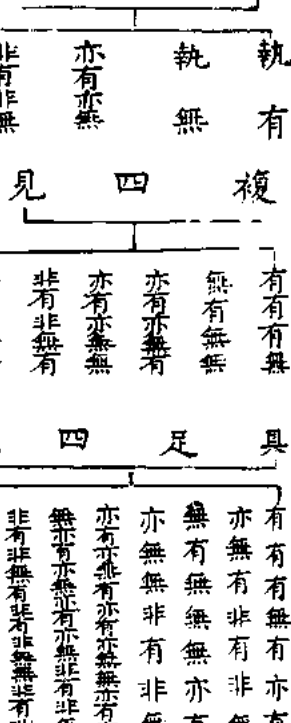 執有
執無
亦有亦無
非有非無
複四見
有有有無
無有無無
亦有亦無有
亦有亦無無
非有非無有
具足四
有有有無有亦有
亦無有非有非無
無有無無無亦有
亦無無非有非無
亦有亦無有亦有亦無無亦有
無亦有亦無亦有亦無非有非
非有非無有非有非無無非有